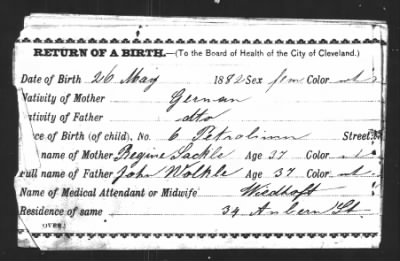 RETURN OF A BIRTH.—(To the Board of Health of the City of Cleveland.)
Date of Birth 26 May 1882 Sex fem Color wh
Nativity of Mother German
ativity of Father dto
ce of Birth (child), No. 6 Petroliumn Street.
name of Mother Regine Sackle Age 37 Color
Full name of Father John Wolkle Age 37 Color
Name of Medical Attendant or Midwife Wiedhoft
Residence of same 34 Anbern St
(OVER.)